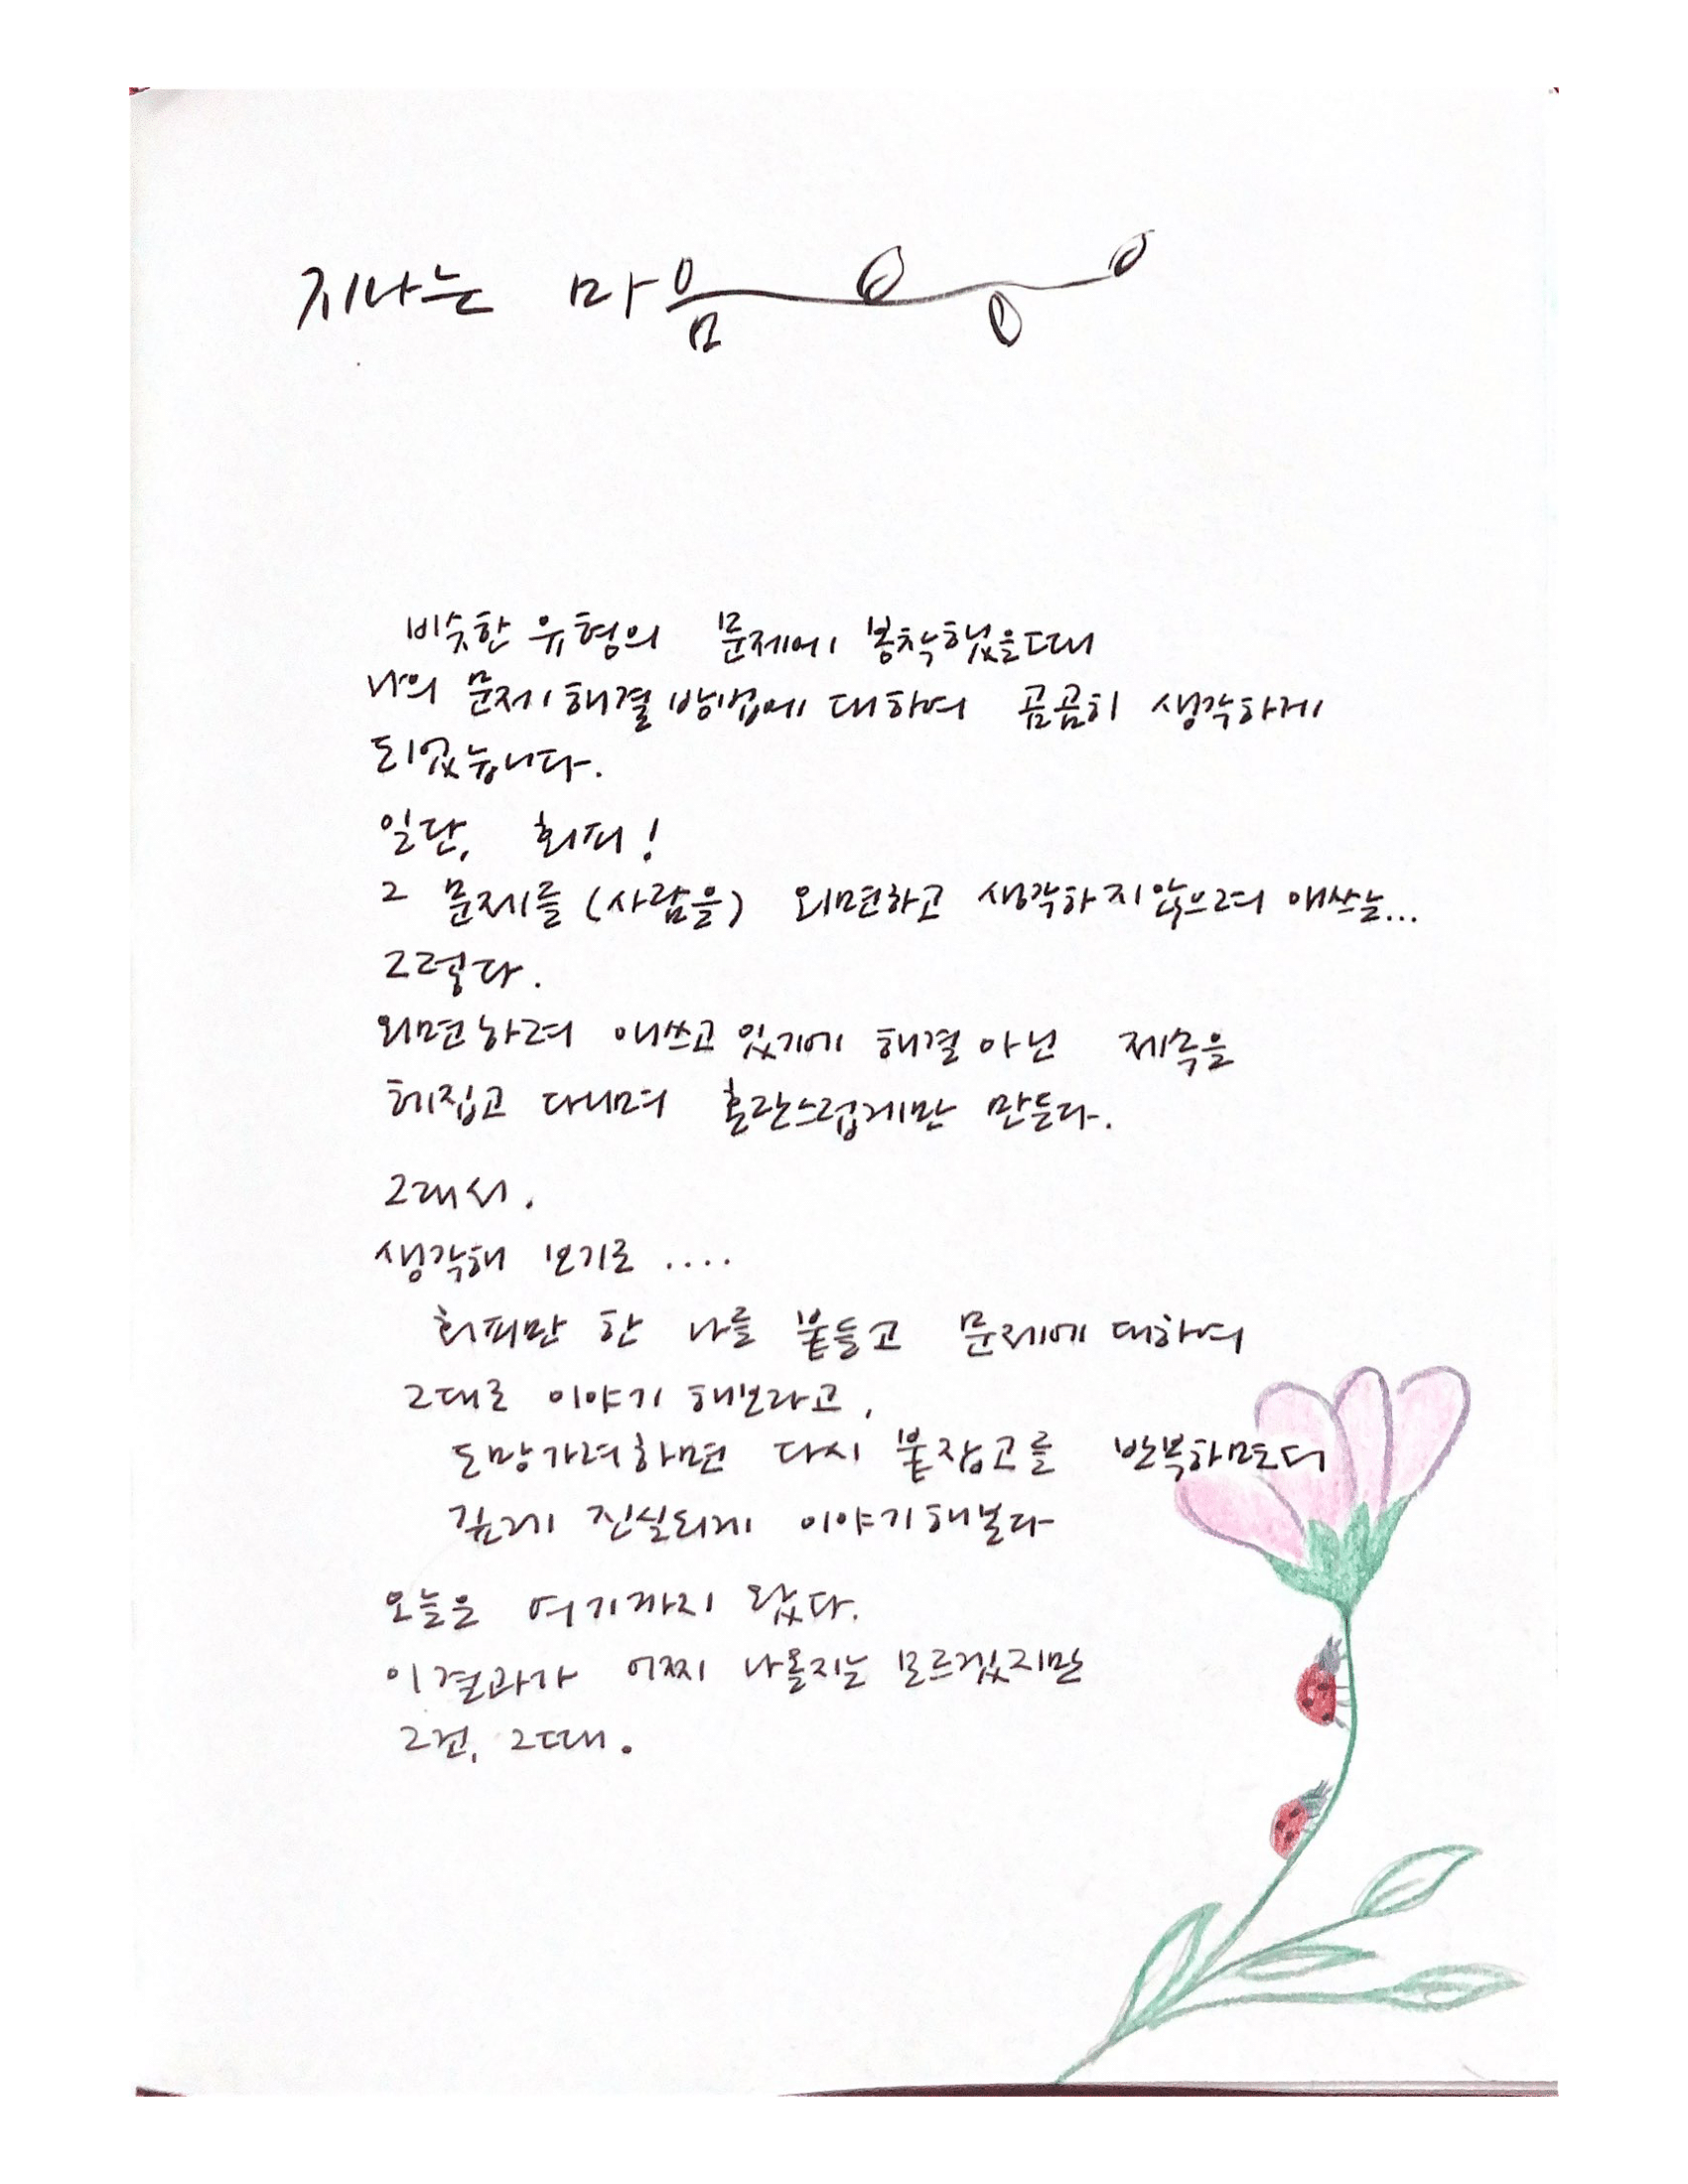 지나는 마음
비슷한 유형의 문제에 봉착했을때
나의 문제해결 방법에 대하여 곰곰히 생각하게
되었습니다.
일단, 회피!
그 문제를 (사람을) 외면하고 생각하지않으려 애쓰는...
그렇다.
외면하려 애쓰고 있기에 해결 아닌
헤집고 다니며 혼란스럽게만 만든다.
그래서.
생각해 보기로 ....
회피만 한 나를 붙들고 문제에 대하여
그대로 이야기 해보라고,
도망가려하면 다시 붙잡고를 반복하면서
깊게 진실되게 이야기해본다
오늘은 여기까지 왔다.
이결과가 어찌 나올지는 모르겠지만
그건, 그때.